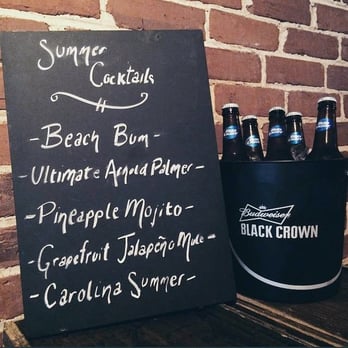 Summer
Cocktails
-Beach Bum-
-Ultimate Arnold Palmer-
-Pineapple Mojito-
-Grapefruit Jalapeño Mule-
-Carolina Summer-
Budweiser
BLACK CROWN